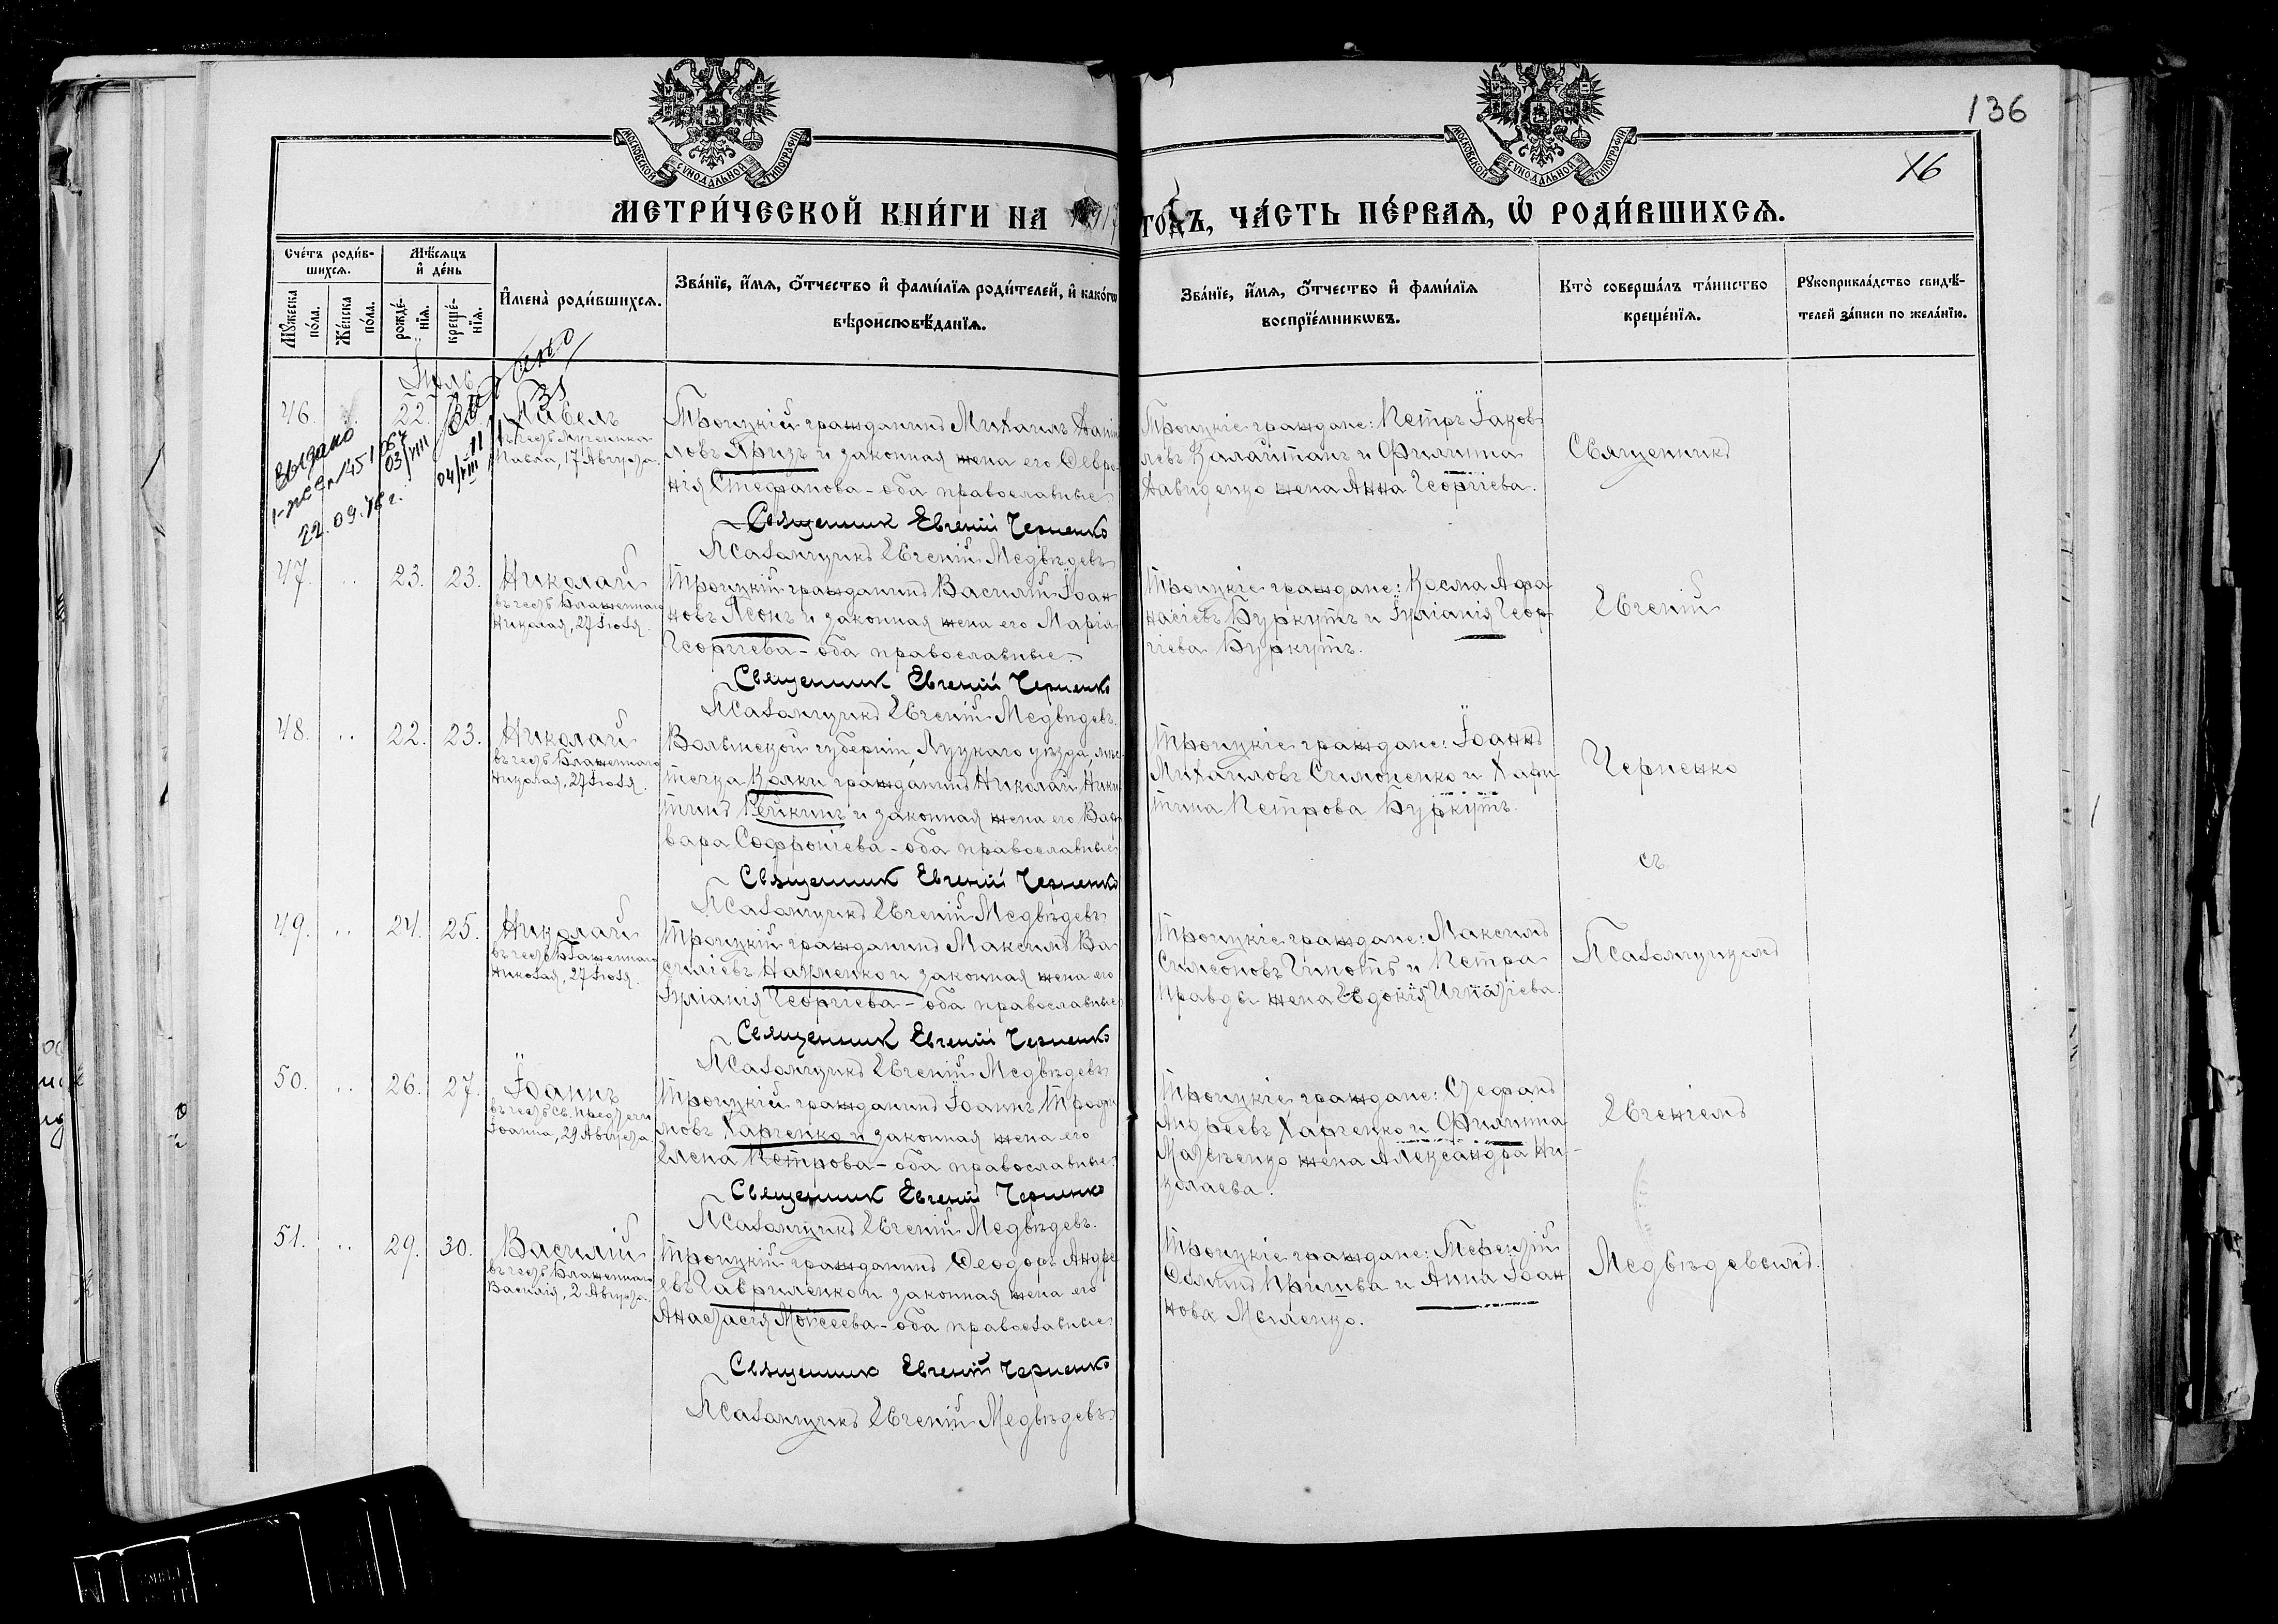 136
16
МОСКОВСКОЙ СѴНОДАЛЬНОЙ ТИПОГРАФІИ
МОСКОВСКОЙ СѴНОДАЛЬНОЙ ТИПОГРАФІИ
МЕТРИ́ЧЕСКОЙ КНИ́ГИ НА 1917 ГОДЪ, ЧА́СТЬ ПЕ́РВАѦ, Ѡ РОДИ́ВШИХСѦ.
Сче́тъ роди́в-
шихсѧ.
Мꙋжеска по́ла.
Же́нска по́ла.
Мѣ́сѧцъ и҆ де́нь
рожде́-
нїѧ.
креще́-
нїѧ.
И҆мена̀ роди́вшихсѧ.
Зва́нїе, и҆́мѧ, ѻ҆́тчество и҆ фами́лїѧ роди́телей, и҆ како́гѡ
вѣроисповѣ́данїѧ.
Зва́нїе, и҆́мѧ, ѻ҆́тчество и҆ фами́лїѧ
воспрїе́мникѡвъ.
Кто̀ соверша́лъ та́инство
креще́нїѧ.
Рꙋкоприкла́дство свидѣ́-
телей за́писи по жела́нїю.
Іюль
46.
22.
Павелъ
Павла, 17 Августа.
выдано
22.09.78 г.
03/VIII
04/VIII
Троицкій гражданинъ Михаилъ Даніи
ловъ Призъ и законная жена его Февро
нія Стефанова – оба православные
Священник Евгеній Черненко
Псаломщикъ Евгеній Медвѣдевъ
Троицкіе граждане: Петръ Іаков
левъ Калайтанъ и Филиппа
Давиденко жена Анна Георгіева.
Священникъ
47. .. 23. 23. Николай
въ честь Блаженнаго
Николая, 27 Іюля.
Троицкій гражданинъ Василій Іоан
новъ Лсонъ и законная жена его Марія
Георгіева – оба православные.
Священник Евгеній Черненко
Псаломщикъ Евгеній Медвѣдевъ.
Троицкіе граждане: Косма Афа
насіевъ Буркутъ и Іуліанія Геор
гіева Буркутъ.
Евгеній
48. .. 22. 23. Николай
въ честь Блаженнаго
Николая, 27 Іюля.
Волынской губерніи, Луцкаго уѣзда, мѣс
течка Колки гражданинъ Николай Ники
тинъ Кейкинъ и законная жена его Вар
вара Софроніева – оба православные
Священник Евгеній Черненко
Псаломщикъ Евгеній Медвѣдевъ
Троицкіе граждане: Іоаннъ
Михаиловъ Симоненко и Хари
тина Петрова Буркутъ.
Черненко
съ
49. .. 24. 25. Николай
въ честь Блаженнаго
Николая, 27 Іюля.
Троицкій гражданинъ Максимъ Ва
силіевъ Науменко и законная жена его
Іуліанія Георгіева – оба православные
Священник Евгеній Черненко
Псаломщикъ Евгеній Медвѣдевъ
Троицкіе граждане: Максимъ
Симеоновъ и Петра
Правды жена Евдокія Игнатіева.
Псаломщикомъ
50. .. 26. 27. Іоаннъ
въ честь Св. Предтечи
Іоанна, 29 Августа.
Троицкій гражданинъ Іоаннъ Трофи
мовъ Харченко и законная жена его
Елена Петрова – оба православные.
Священник Евгеній Черненко
Псаломщикъ Евгеній Медвѣдевъ.
Троицкіе граждане: Стефанъ
Андреевъ Харченко и Филиппа
жена Александра Ни-
колаева.
Евгеніемъ
51. .. 29. 30. Василій
въ честь Блаженнаго
Василія, 2 Августа.
Троицкій гражданинъ Феодоръ Андре
евъ Гавриленко и законная жена его
Анастасія Моисеева – оба православные
Священник Евгеній Черненко
Псаломщикъ Евгеній Медвѣдевъ
Троицкіе граждане: Терентій
и Анна Іоан
нова
Медвѣдевымъ.